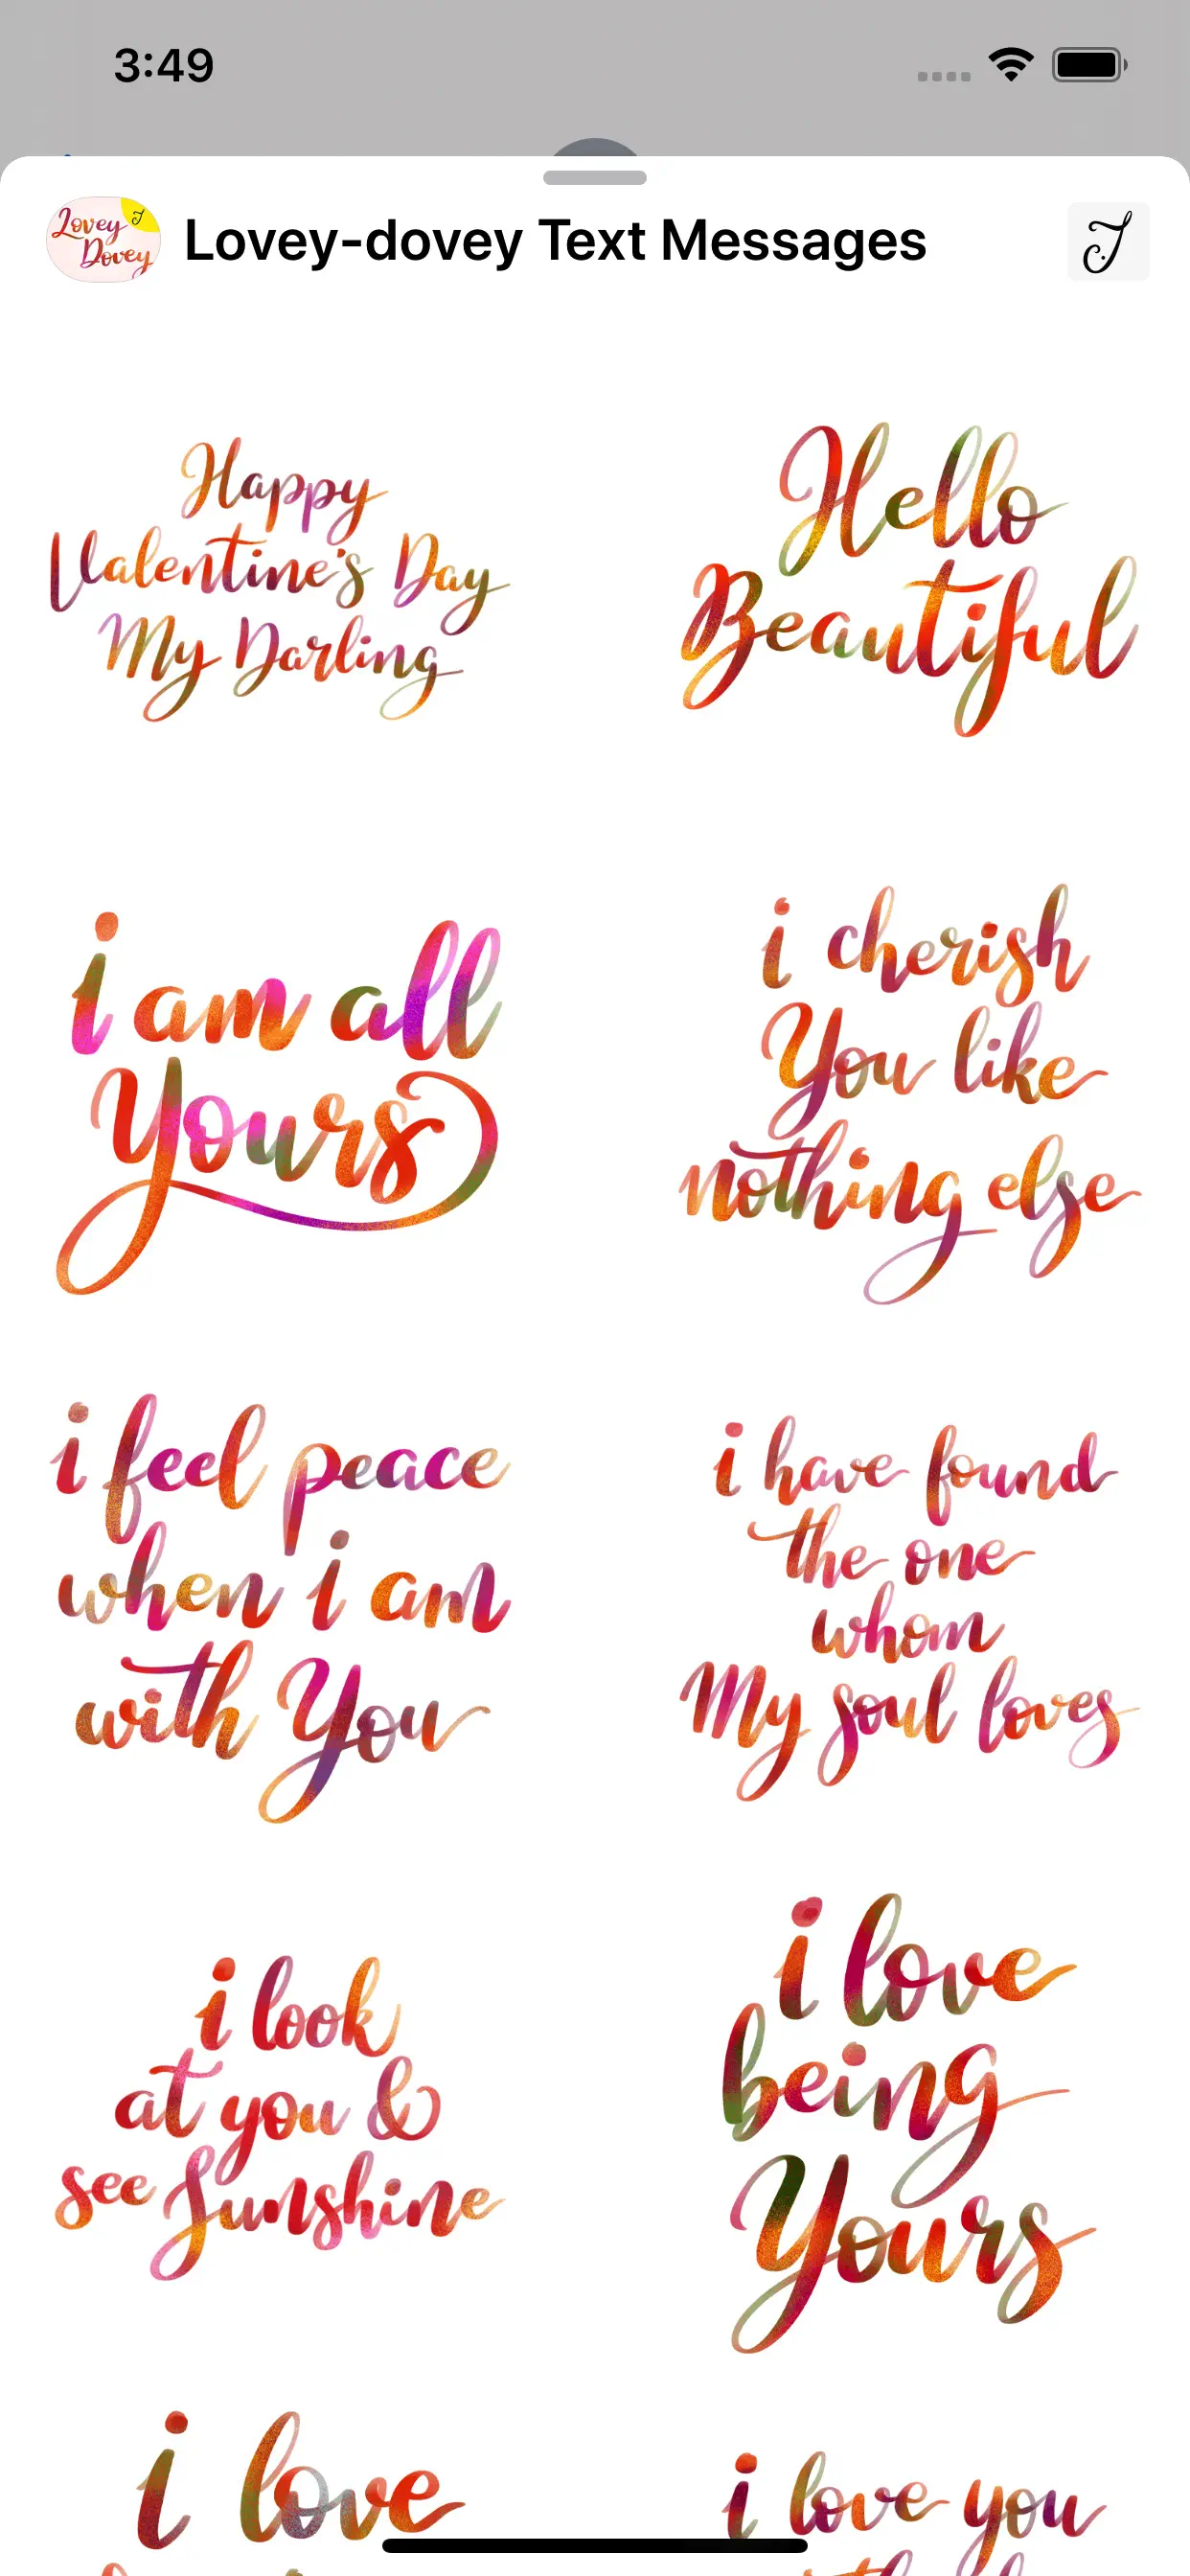 3:49
Lovey
Dovey
J
Lovey-dovey Text Messages
J
Happy
Valentine's Day
My Darling
Hello
Beautiful
i am all
Yours
i cherish
You like
nothing else
i feel peace
when i am
with You
i have found
the one
whom
My soul loves
i look
at you &
see Sunshine
i love
being
Yours
i love
i love you